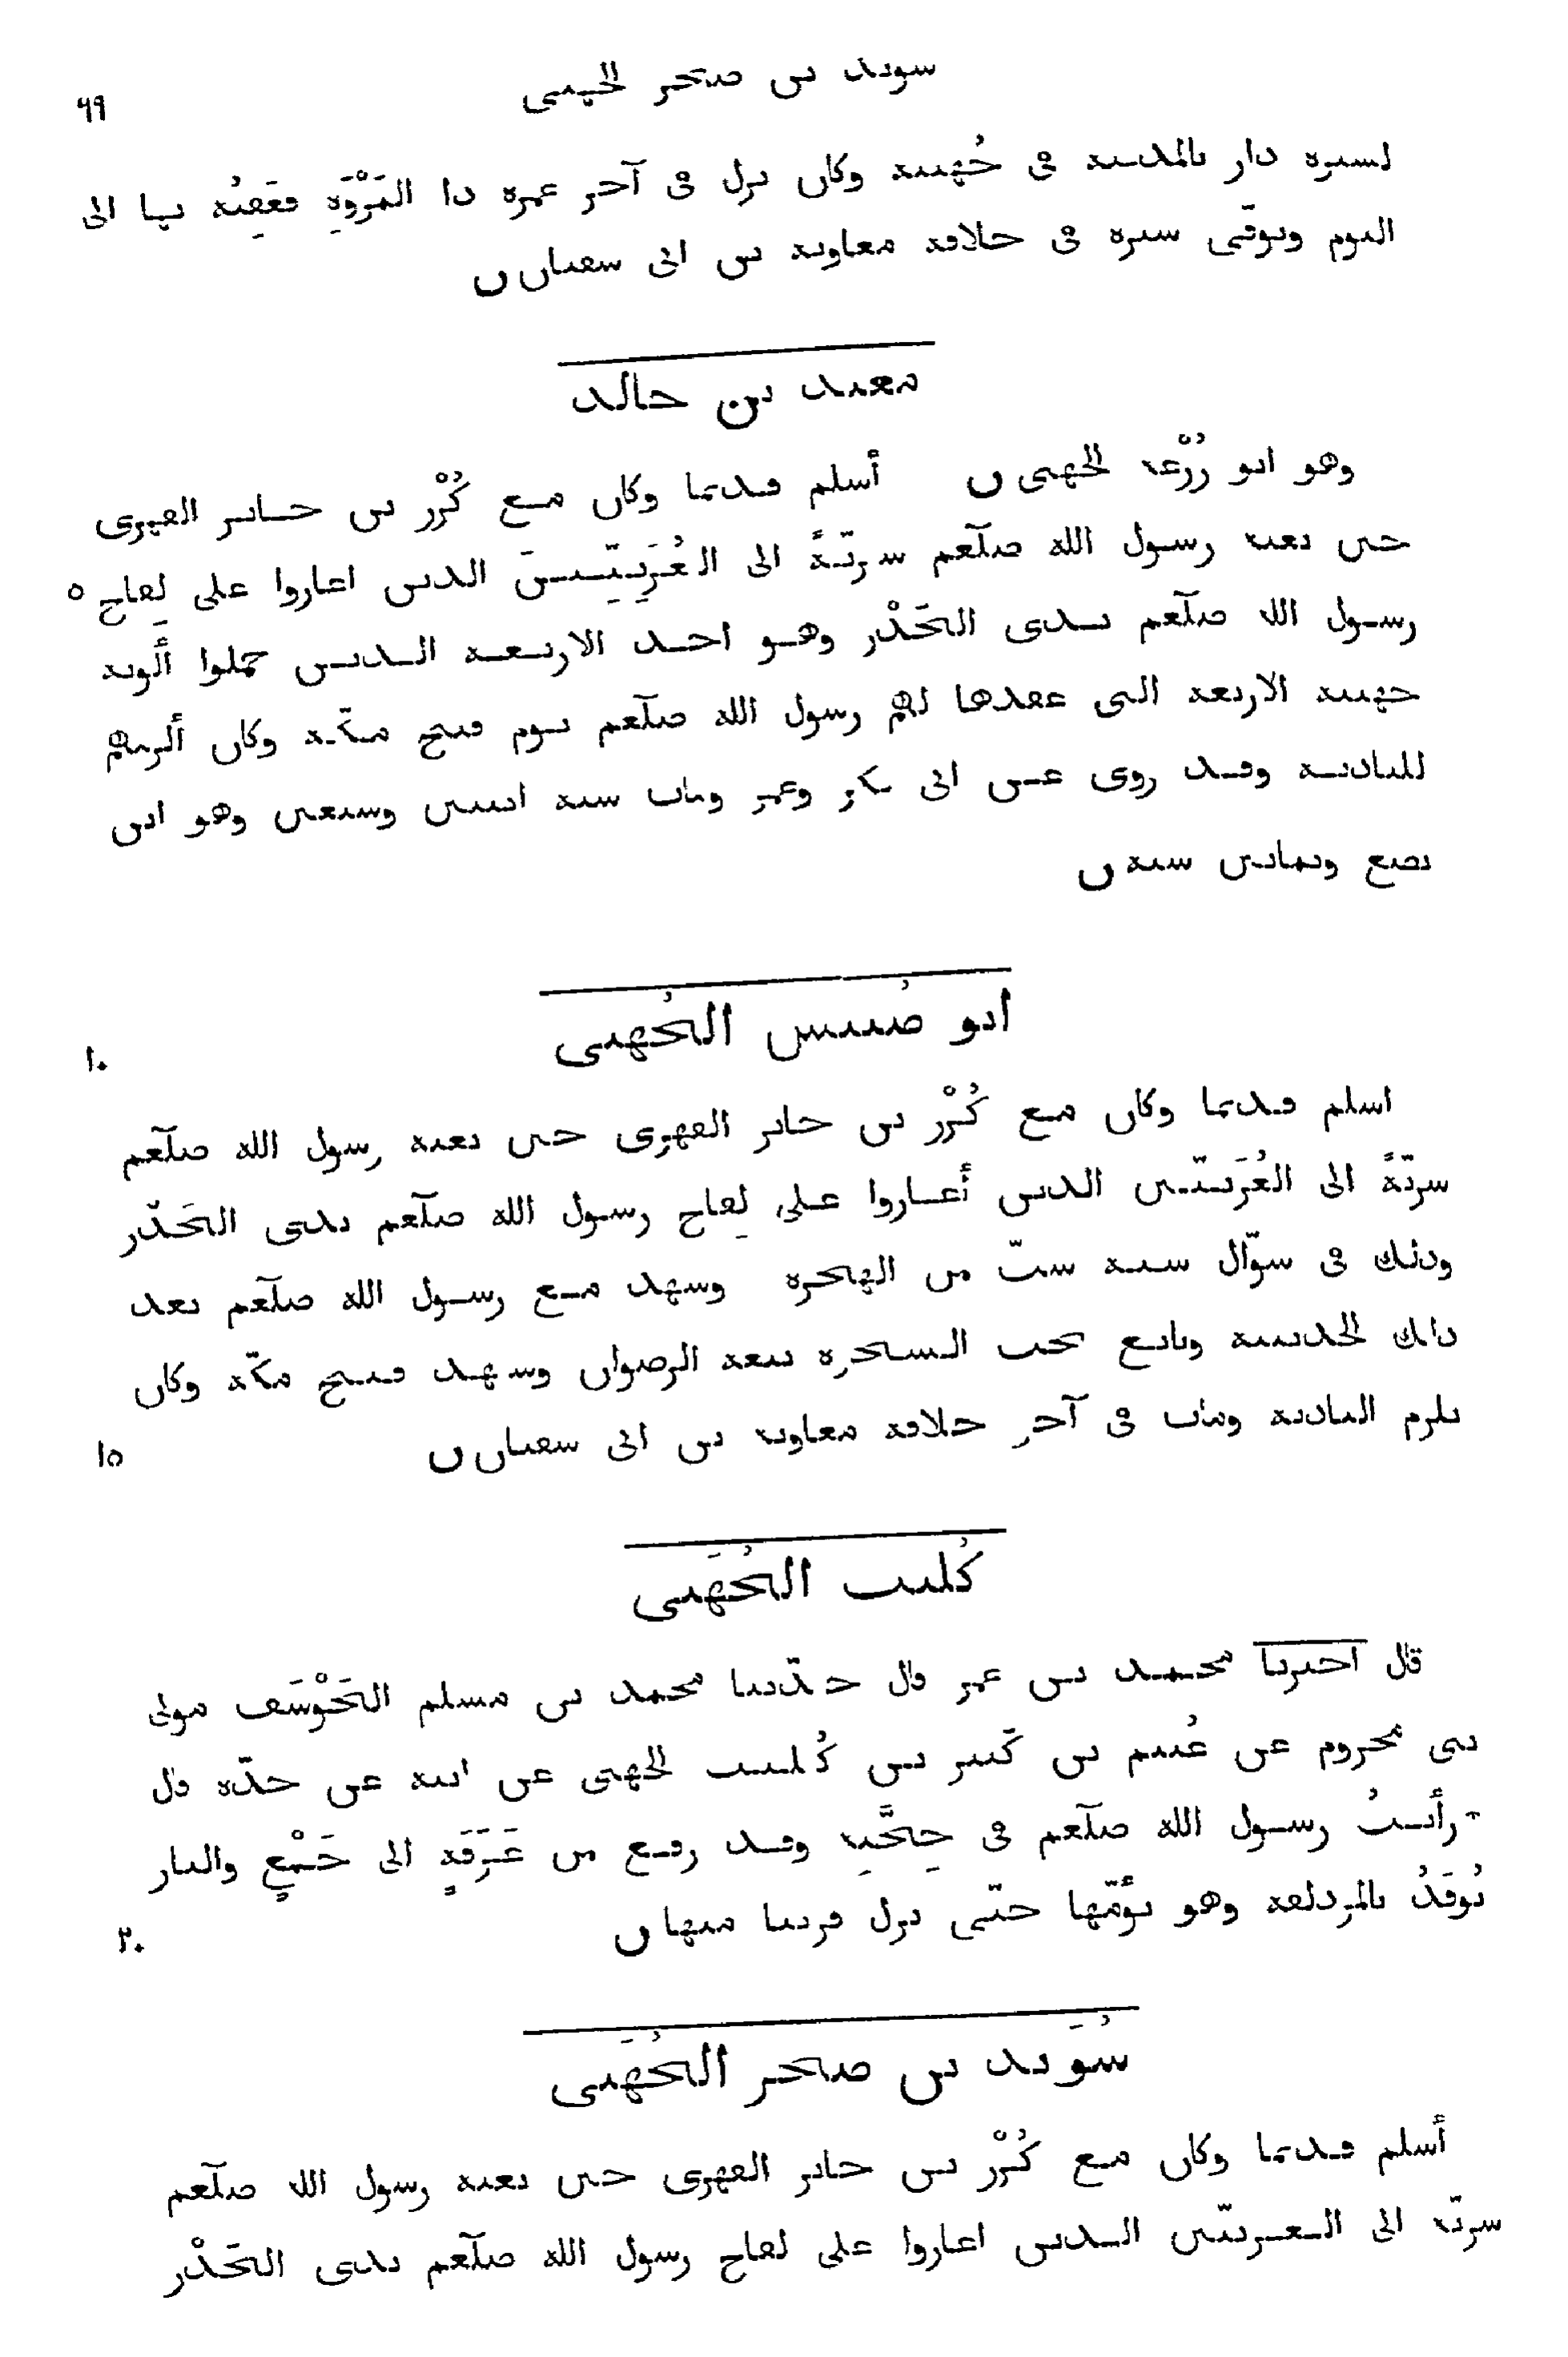 سويد بن صخر الجهني
٦٩
لسبرة دار بالمدينة في جُهينة وكان نزل في آخر عمره ذا المَرْوَةِ فعَقِبُه بها الى
اليوم وتوفّى سبرة في خلافة معاوية بن ابى سفيان ن
معبد بن خالد
وهو ابو زُرْعة الجهنى ن أسلم قديما وكان مع كُرْز بن جابر الفهرى
حين بعثه رسول الله صلّعم سريّةً الى العُرَنِيّينَ الذين اغاروا على لِقاح ٥
رسول الله صلّعم بذى الجَدْر وهو احد الاربعة الذين حملوا ألوية
جهينة الاربعة التى عقدها لهم رسول الله صلّعم يوم فتح مكّة وكان ألزمهم
للبادية وقد روى عن ابى بكر وعمر ومات سنة اثنتين وسبعين وهو ابن
بضع وثمانين سنة ن
ابو ضُبيس الجُهنى
١٠
اسلم قديما وكان مع كُرْز بن جابر الفهرى حين بعثه رسول الله صلّعم
سريّةً الى العُرَنيّين الذين أغاروا على لِقاح رسول الله صلّعم بذى الجَدْر
وذلك في شوّال سنة ستّ من الهجرة وشهد مع رسول الله صلّعم بعد
ذلك الحديبية وبايع تحت الشجرة بيعة الرضوان وشهد فتح مكّة وكان
يلزم البادية ومات في آخر خلافة معاوية بن ابى سفيان ن
١٥
كُليب الجُهَنى
قال اخبرنا محمد بن عمر قال حدّثنا محمد بن مسلم الجَوْسَق مولى
بنى مخزوم عن غُنيم بن كَثير بن كُليب الجهنى عن ابيه عن جدّه قال
رأيتُ رسول الله صلّعم في حِجَّتِه وقد دفع من عَرَفَةٍ الى جَمْعٍ والنار
تُوقَدُ بالمزدلفة وهو يؤُمّها حتّى نزل قريبا منها ن
٢٠
سُوَيد بن صخر الجُهَنى
أسلم قديما وكان مع كُرْز بن جابر الفهرى حين بعثه رسول الله صلّعم
سريّة الى العرنيّين الذين اغاروا على لقاح رسول الله صلّعم بذى الجَدْر